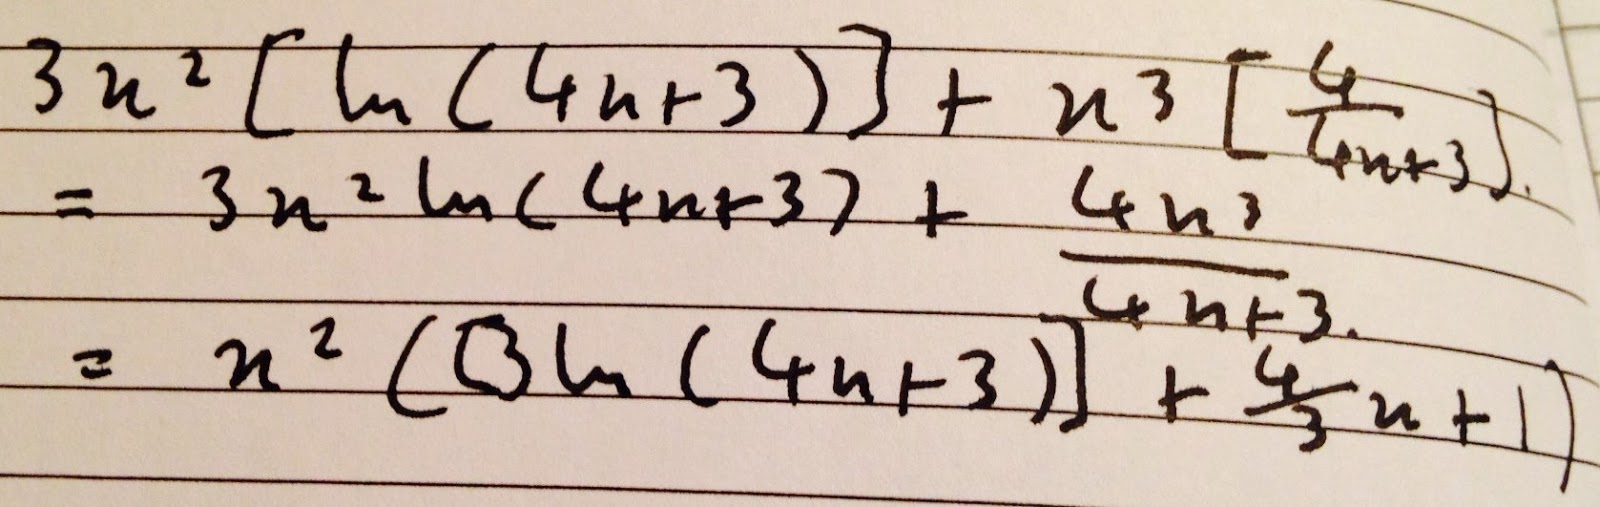 3x² [ln(4x+3)] + x3 [4/4x+3].
= 3x² ln(4x+3) + 4x³/4x+3.
= x² ([3 ln(4x+3)] + 4/3 x + 1)